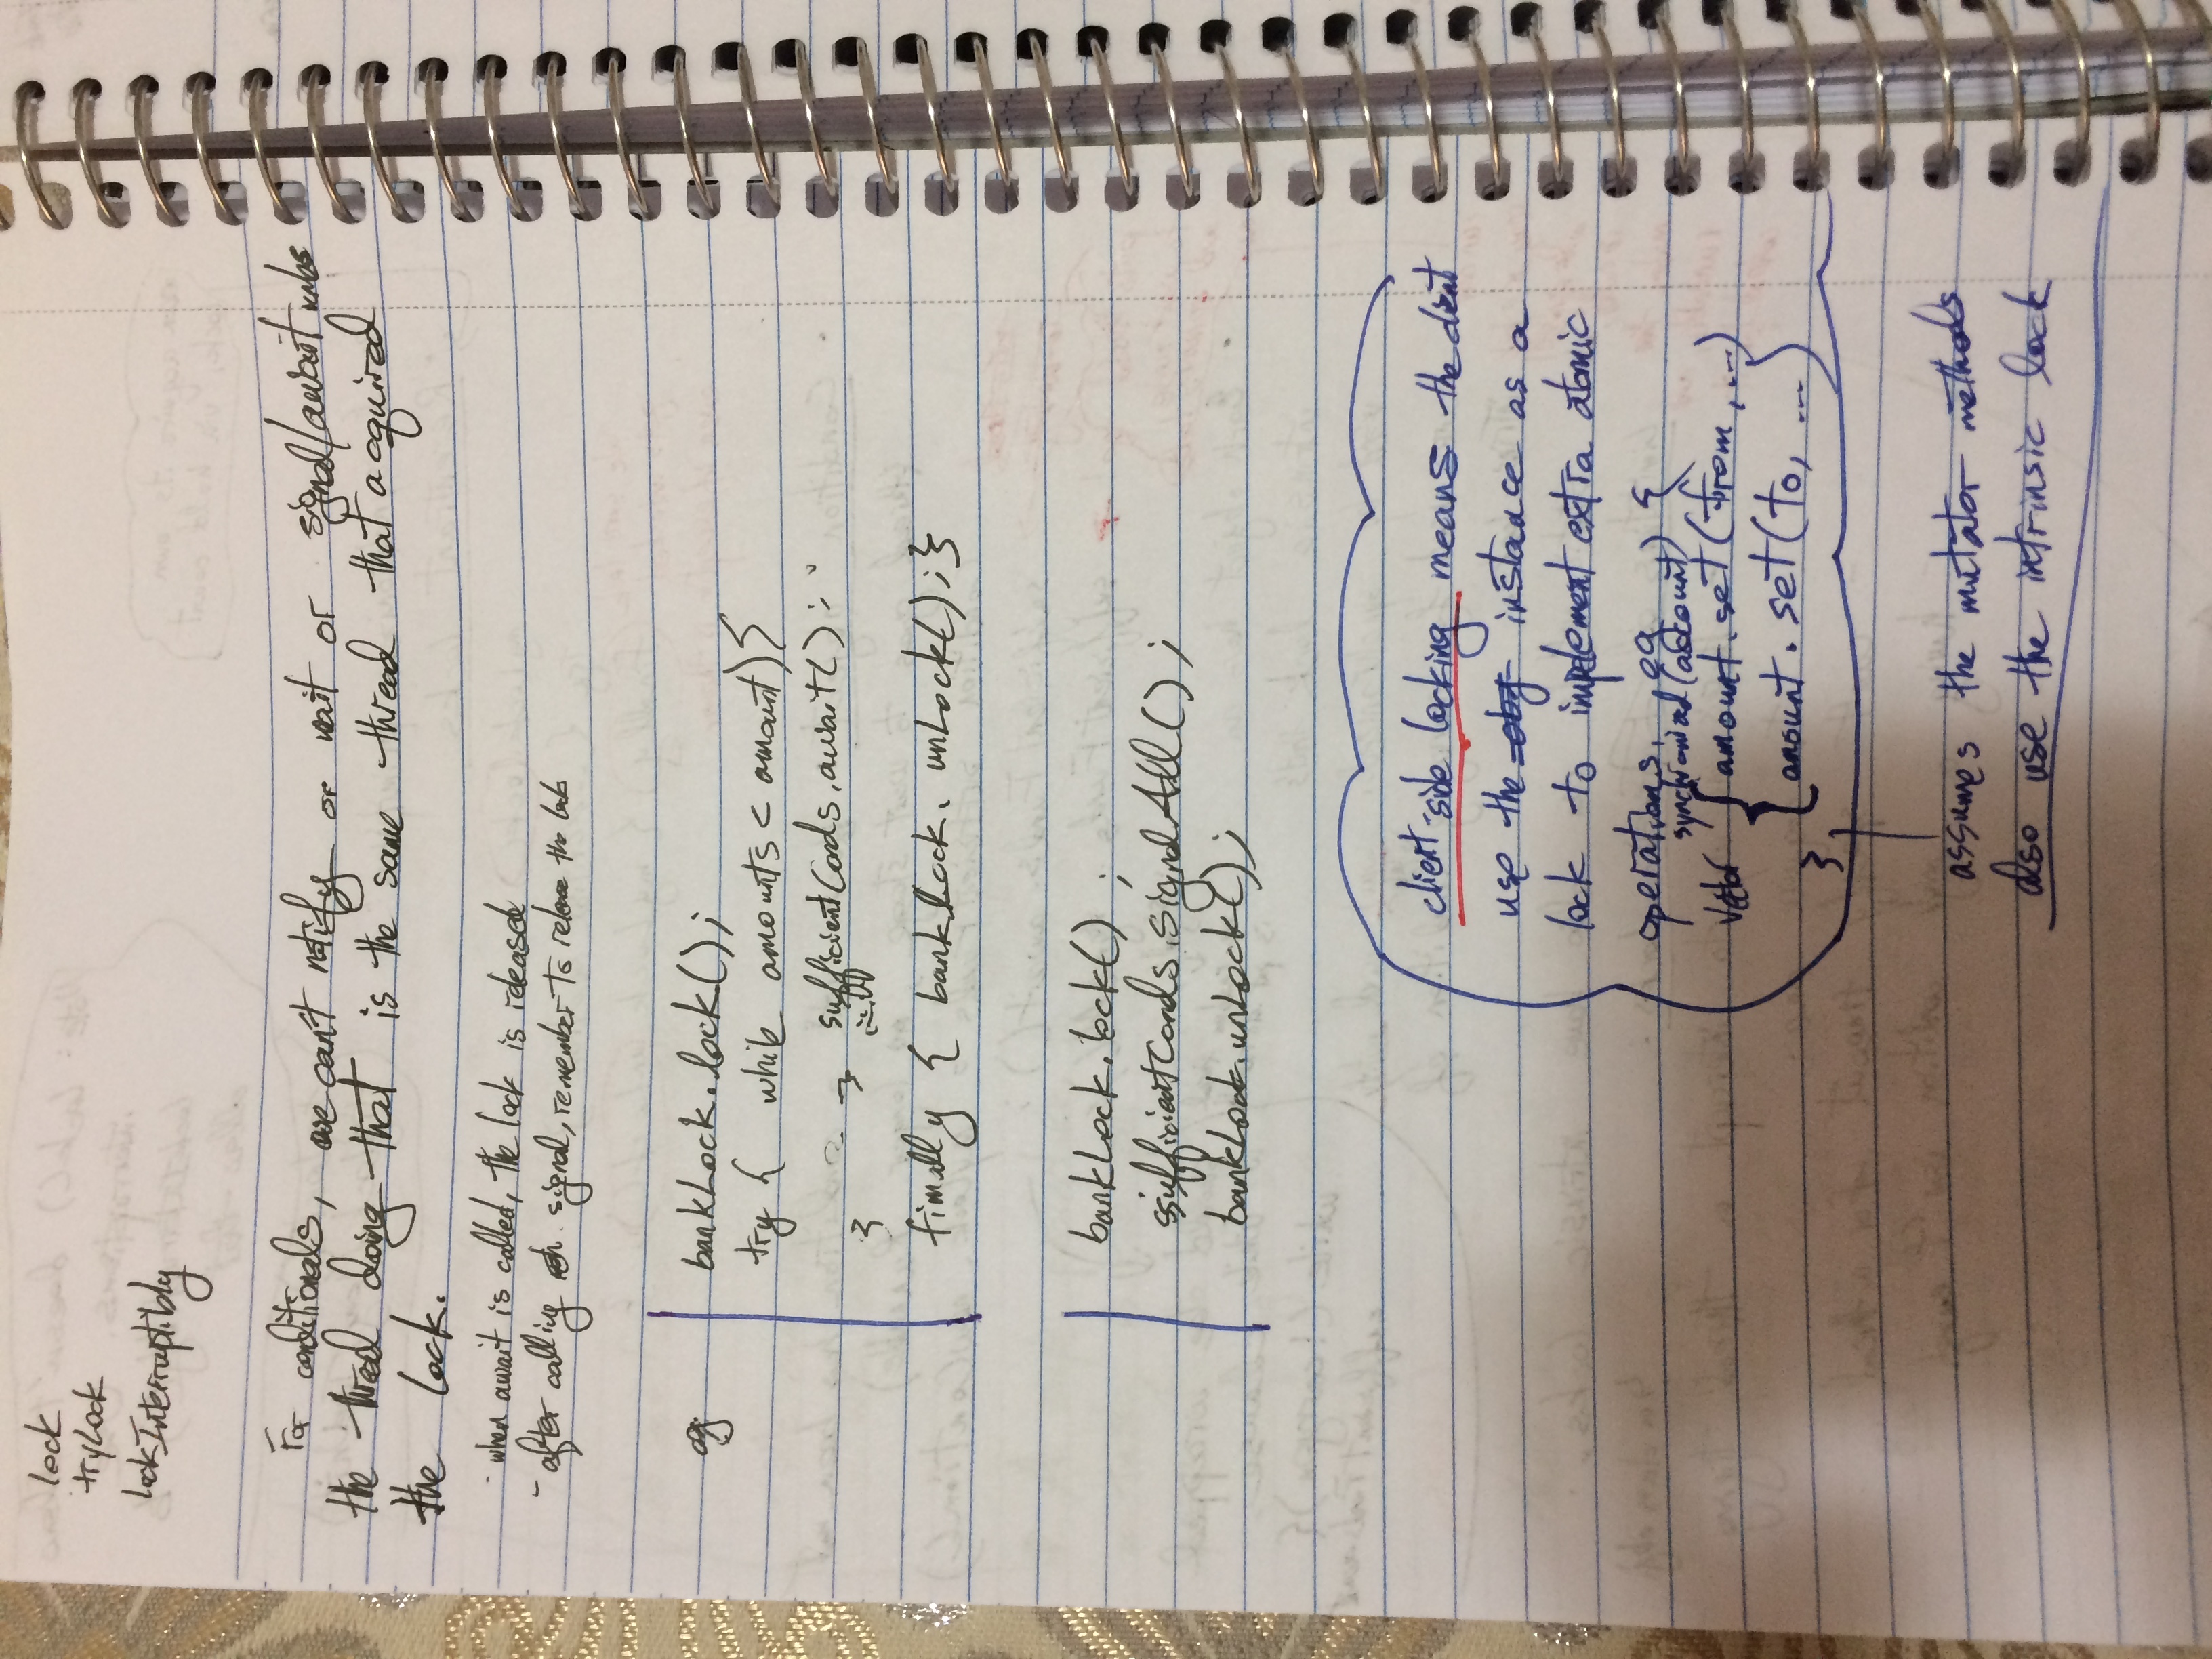 lock
tryLock
lockInterruptibly
For conditionals, we can't notify or wait or signal/await unless
the thread doing that is the same thread that acquired
the lock.
- when await is called, the lock is released
- after calling signal, remember to release the lock
eg
bankLock.lock();
try { while amounts < amount) {
} sufficientConds.await();
}
finally { bankLock.unLock(); }
bankLock.lock() ;
ssufficientConds.signalAll();
bankLock.unLock();
client-side locking means the client
use the obj instance as a
lock to implement extra atomic
operations, eg
synchronized (account) {
Vector { amount.set(from, ...)
amount.set(to, ...)
}
assumes the mutator methods
also use the intrinsic lock